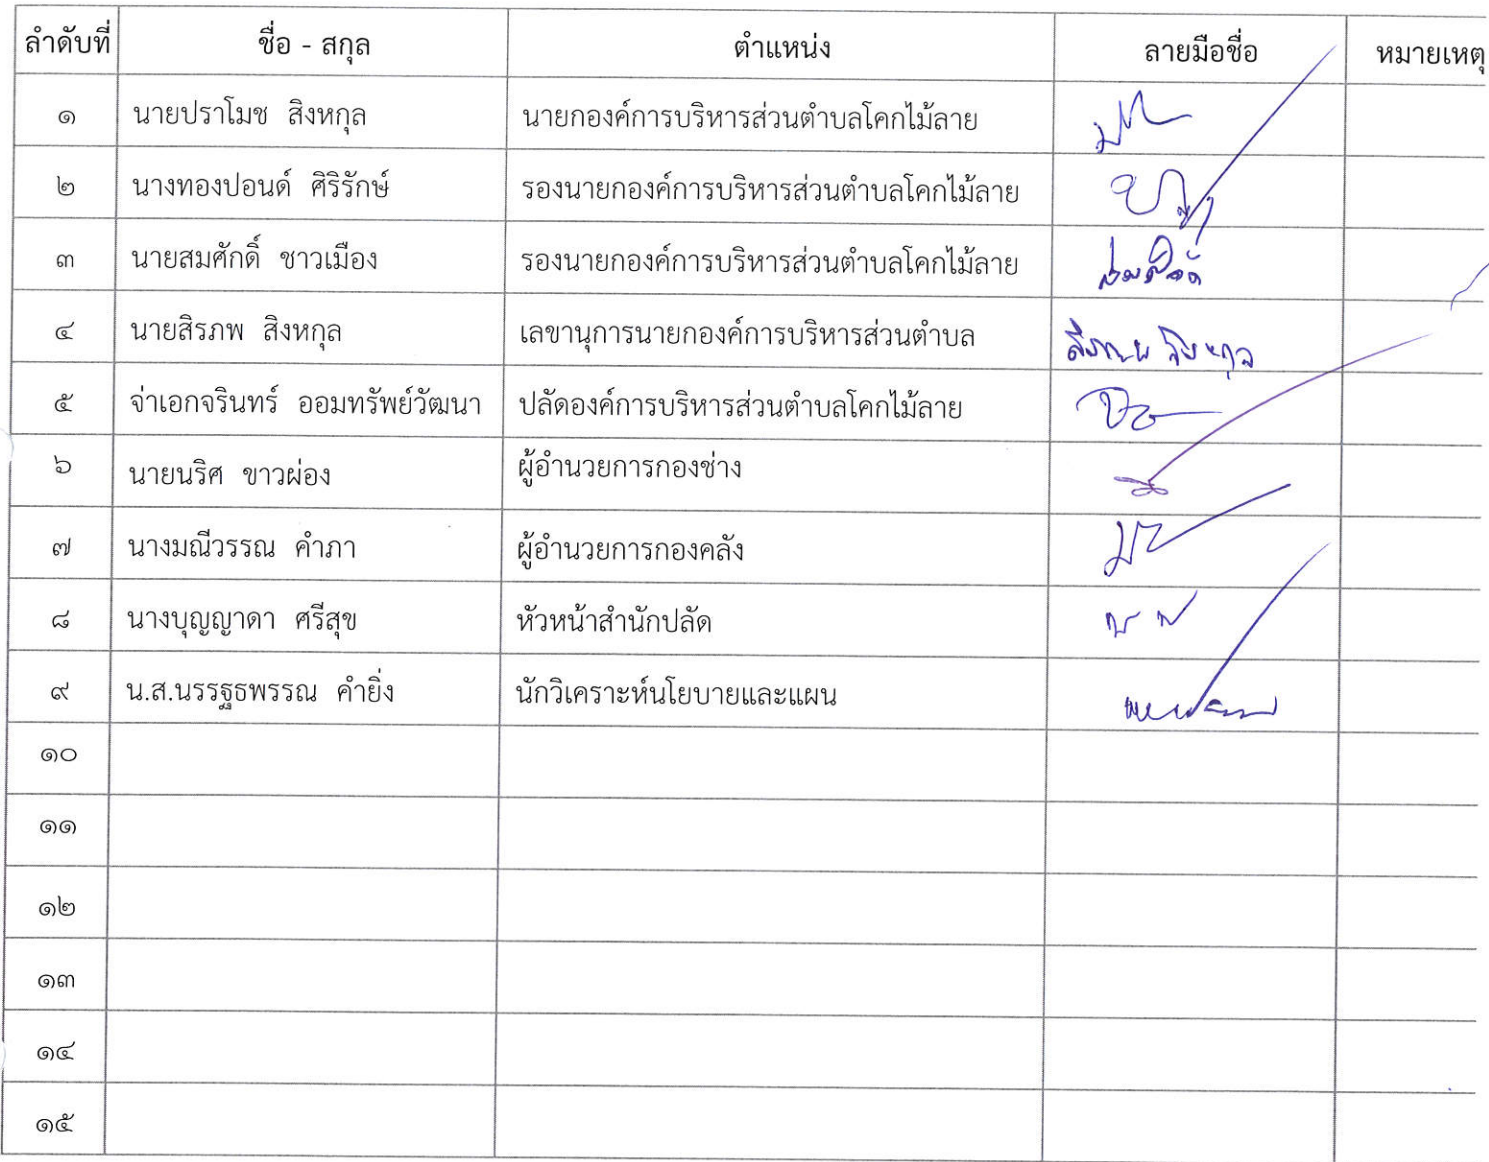 ลำดับที่ ชื่อ - สกุล ตำแหน่ง ลายมือชื่อ หมายเหตุ
๑ นายปราโมช สิงหกุล นายกองค์การบริหารส่วนตำบลโคกไม้ลาย
๒ นางทองปอนด์ ศิริรักษ์ รองนายกองค์การบริหารส่วนตำบลโคกไม้ลาย
๓ นายสมศักดิ์ ชาวเมือง รองนายกองค์การบริหารส่วนตำบลโคกไม้ลาย สมศักดิ์
๔ นายสิรภพ สิงหกุล เลขานุการนายกองค์การบริหารส่วนตำบล สิรภพ สิงหกุล
๕ จ่าเอกจรินทร์ ออมทรัพย์วัฒนา ปลัดองค์การบริหารส่วนตำบลโคกไม้ลาย
๖ นายนริศ ขาวผ่อง ผู้อำนวยการกองช่าง
๗ นางมณีวรรณ คำภา ผู้อำนวยการกองคลัง
๘ นางบุญญาดา ศรีสุข หัวหน้าสำนักปลัด
๙ น.ส.นรรฐธพรรณ คำยิ่ง นักวิเคราะห์นโยบายและแผน
๑๐
๑๑
๑๒
๑๓
๑๔
๑๕